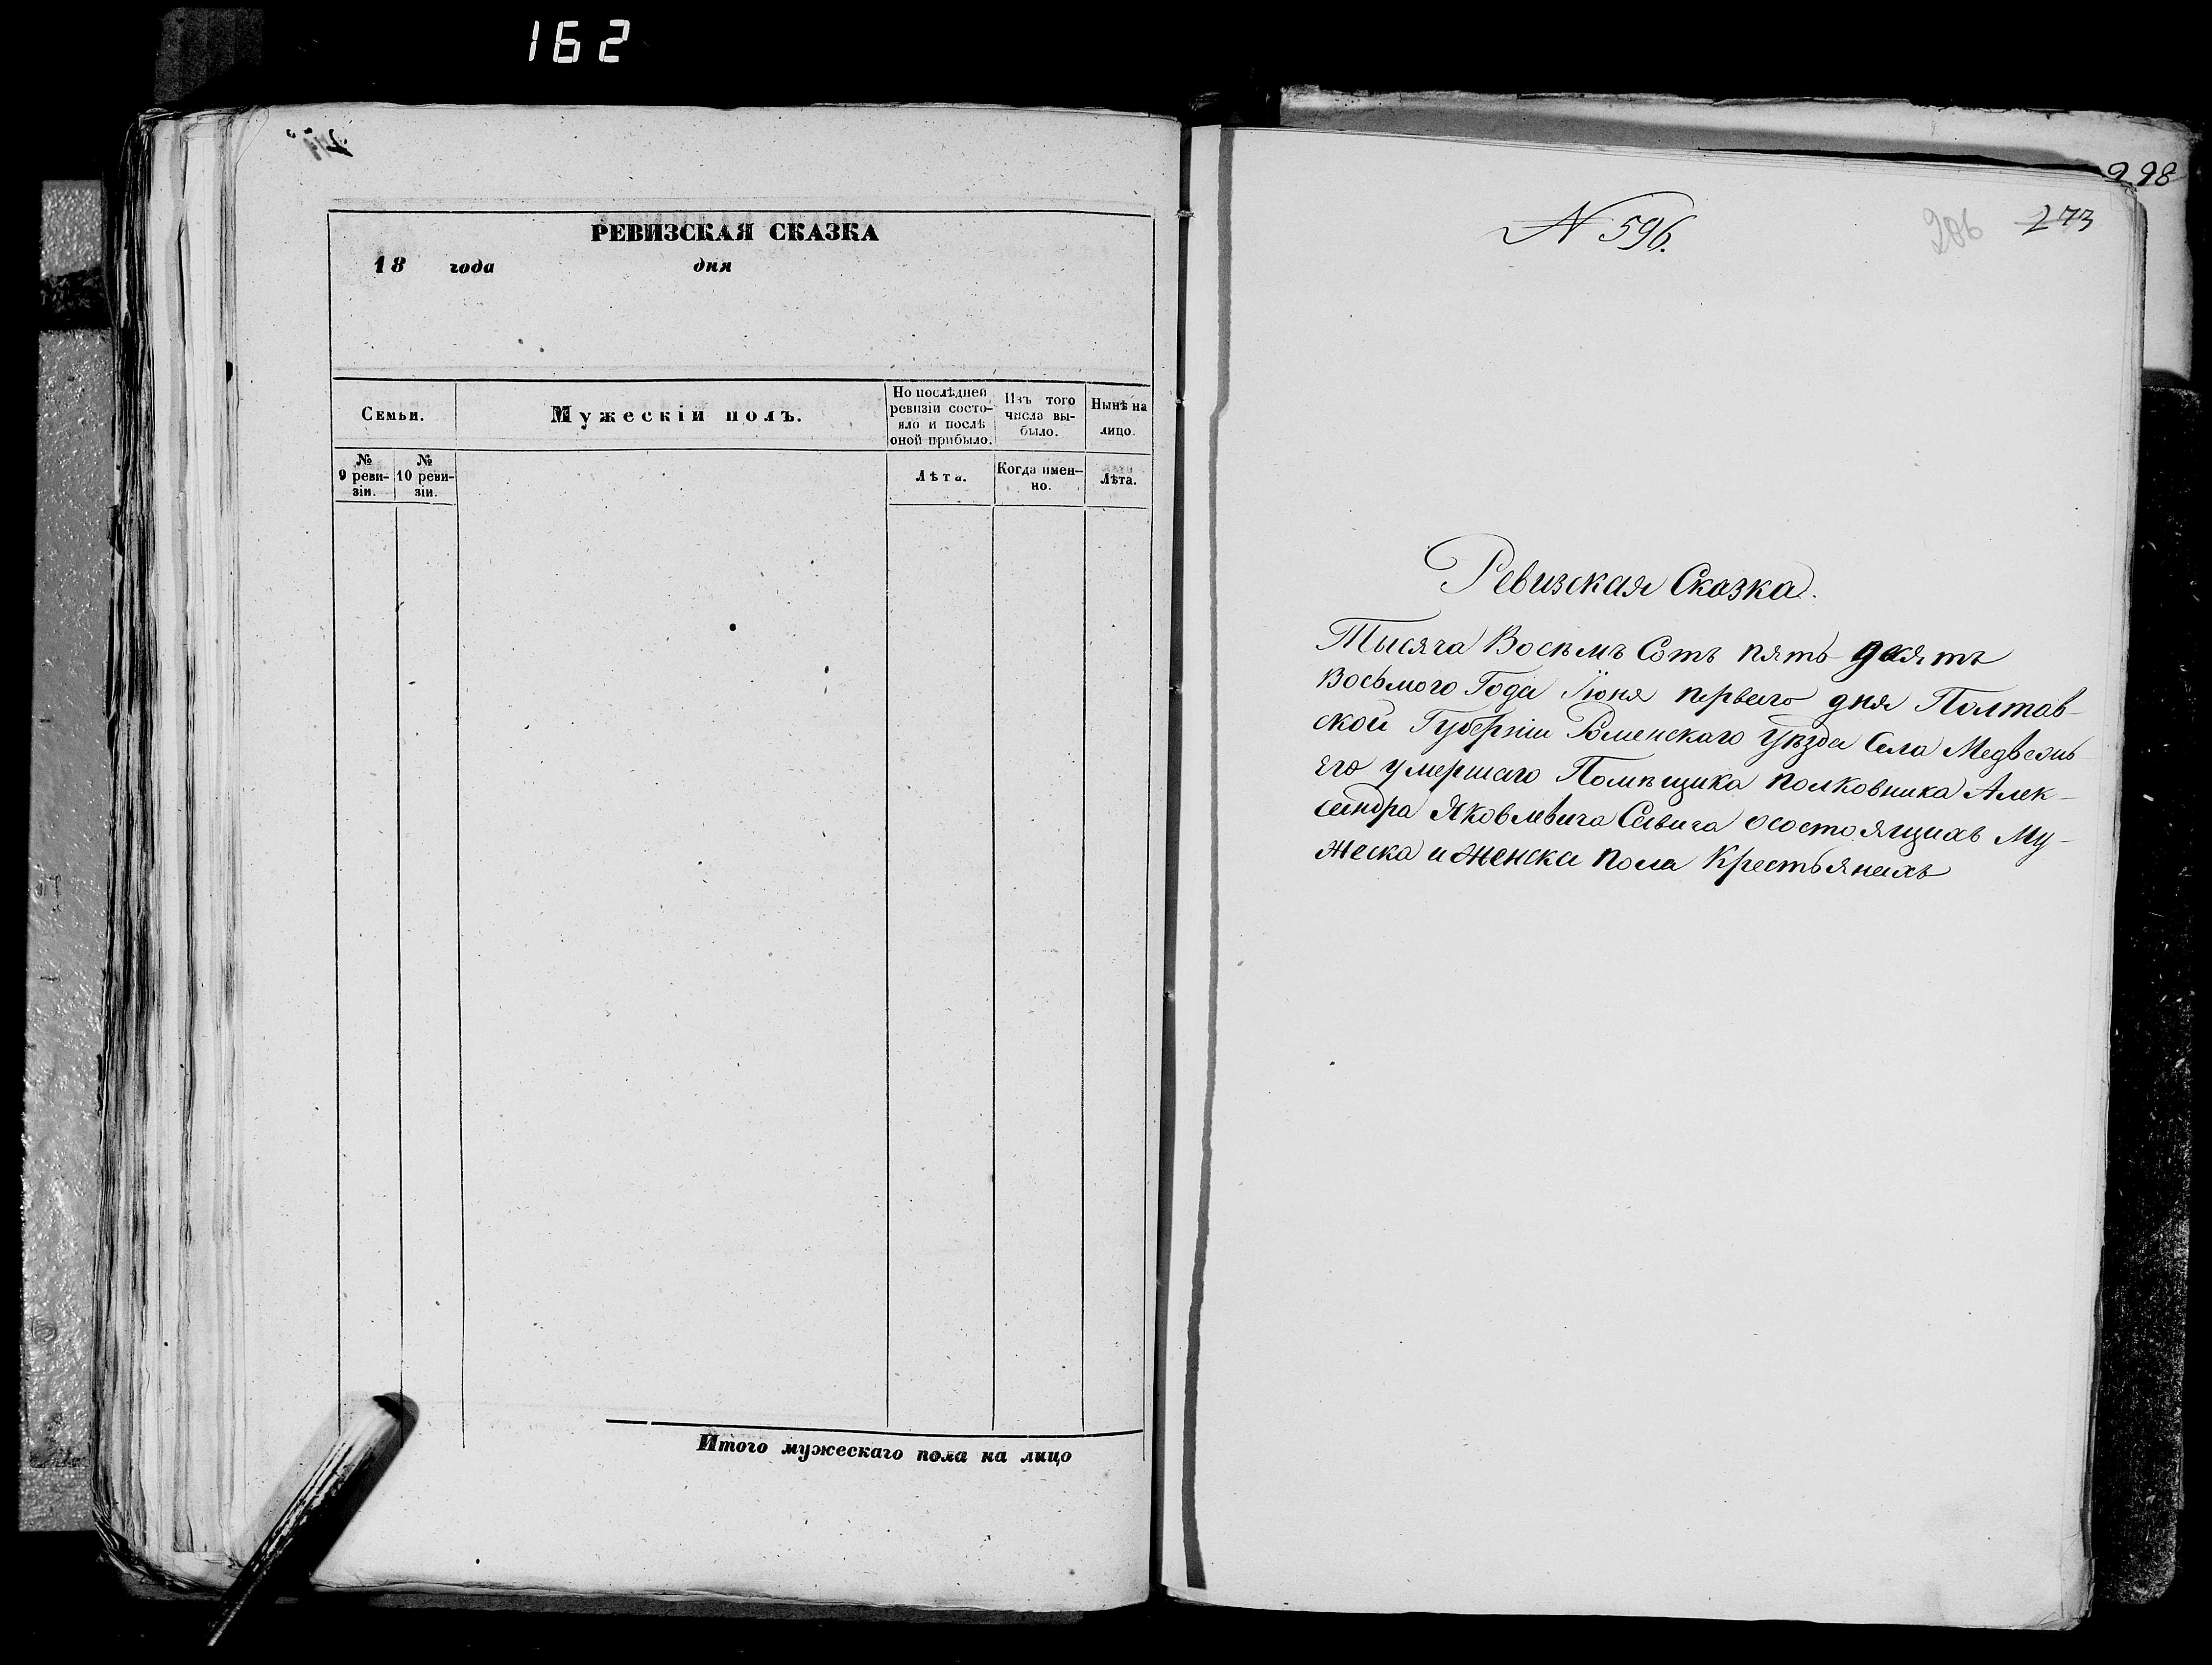 162
РЕВИЗСКАЯ СКАЗКА
18 года дня
Семьи.
Мужескій полъ.
По послѣдней ревизіи состо-
яло и послѣ
оной прибыло.
Изъ того
числа вы-
было.
Нынѣ на
лицо.
№
9 реви-
зіи.
№
10 реви-
зіи.
Лѣта.
Когда имен-
но.
Лѣта.
Итого мужескаго пола на лицо
298
N 596.
206 273
Ревизская Сказка.
Тысяча Восемъ Сотъ пять десятъ
Восьмого Года Іюня перваго дня Полтав-
ской Губерніи Роменскаго Уѣзда Села Медвежь
его умершаго Помѣщика полковника Алек-
сандра Яковлевича Савича о состоящихъ Му-
жеска и женска пола Крестьянахъ